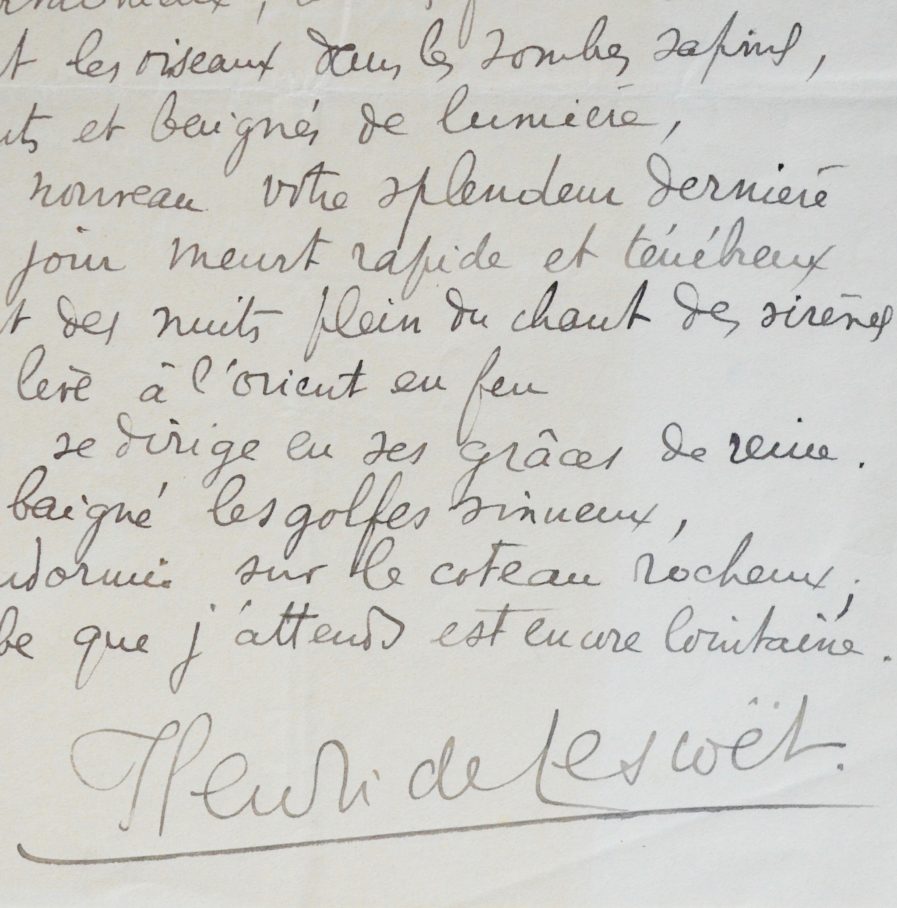 t les oiseaux dans les sombres sapins,
et baignés de lumière,
nouveau votre splendeur dernière
jour meurt rapide et ténébreux
t des nuits plein du chant des sirènes
levé à l'orient en feu
se dirige en ses grâces de reine.
baigné les golfes sinueux,
ndormi sur le coteau rocheux;
be que j'attends est encore lointaine.
Henri de Lescoët.